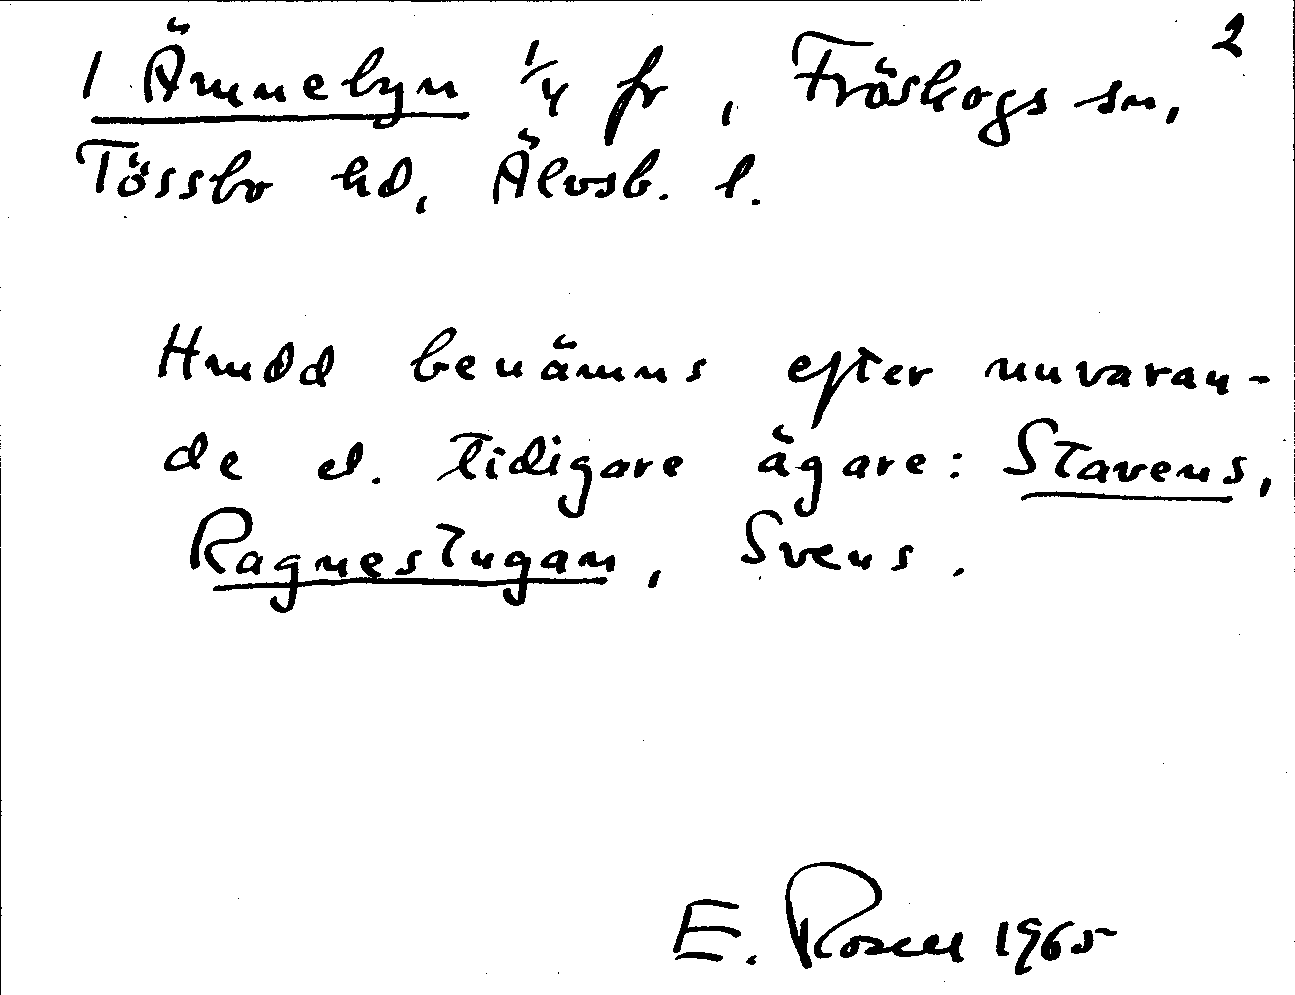 2
1 Ämnebyn 1/4 fr, Fröskogs sn,
Tössbo hd, Älvsb. l.
Hmdd benämns efter nuvaran-
de el. tidigare ägare: Stavens,
Ragnestugan, Svens.
E. Rosell 1965